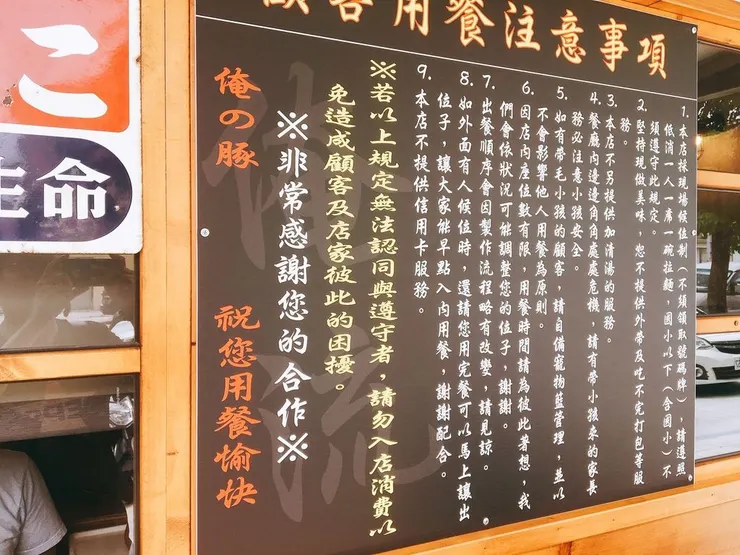 顧客用餐注意事項
1. 本店採現場候位制(不須領取號碼牌)，請遵照
低消一人一席一碗拉麵，國小以下(含國小)不
須遵守此規定。
2. 堅持現做美味，恕不提供外帶及吃不完打包等服
務。
3. 本店不另提供加清湯的服務。
4. 餐廳內邊邊角角處處危機，請有帶小孩來的家長
務必注意小孩安全。
5. 如有帶毛小孩的顧客，請自備寵物籃管理，並以
不會影響他人用餐為原則。
6. 因店內座位數有限，用餐時間請為彼此著想，我
們會依狀況可能調整您的位子，謝謝。
7. 出餐順序會因製作流程略有改變，請見諒。
8. 如外面有人候位時，還請您用完餐可以馬上讓出
位子，讓大家能早點入內用餐，謝謝配合。
9. 本店不提供信用卡服務。
※若以上規定無法認同與遵守者，請勿入店消費以
免造成顧客及店家彼此的困擾。
※非常感謝您的合作※
俺の豚 祝您用餐愉快
俺流
こ
生命